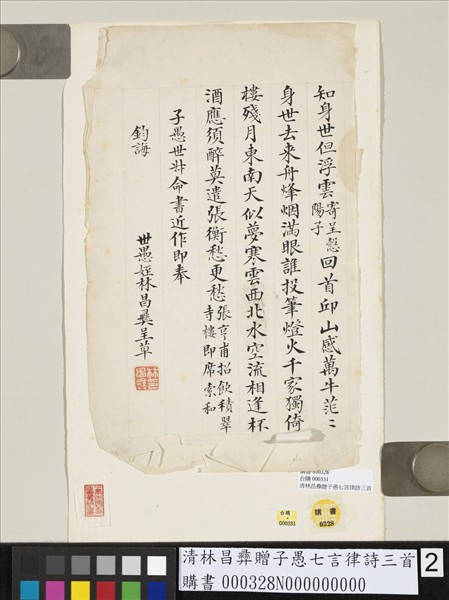 知身世但浮雲 寄呈
陽子 回首邱山感萬牛茫〻
身世去來舟烽烟滿眼誰投筆燈火千家獨倚
樓殘月東南天似夢寒雲西北水空流相逢杯
酒應須醉莫遣張衡愁更愁 張亨甫招飲積翠
寺樓即席索和
子愚世叔命書近作即奉
鈞誨
世愚姪林昌彝呈草
購書 000328
台購 000331
清林昌彝贈子愚七言律詩三首
台購
000331
購書
0328
清林昌彝贈子愚七言律詩三首
購書 000328N000000000
2